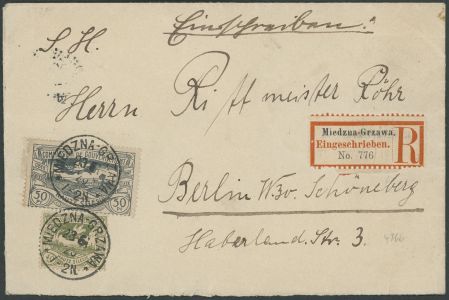 Einschreiben.
S. H.
Herrn Rittmeister Röhr
Miedzna-Grzawa.
Eingeschrieben.
No. 776
R
Berlin W30. Schöneberg
Haberland. Str. 3.
50 50
MIEDZNA-GRZAWA
MIEDZNA-GRZAWA